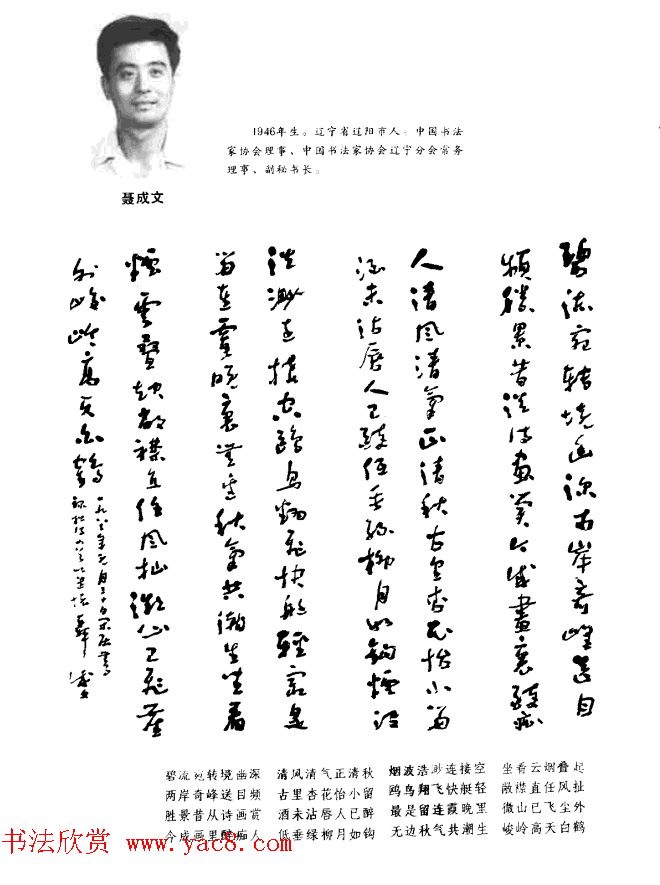 聂成文
1946年生。辽宁省辽阳市人。中国书法
家协会理事、中国书法家协会辽宁分会常务
理事、副秘书长。
碧流宛轉境幽深両岸奇峰送目
頻勝景昔從詩畫賞今成畫裏醉痴
人清風清氣正清秋古里杏花怡小留
酒未沾唇人已醉低垂綠柳月如鉤煙波
浩渺連接空鷗鳥翔飛快艇輕最是
留連霞晚裏無邊秋氣共潮生坐看
煙雲疊起敞襟直任風扯微山已飛塵
外峻嶺高天白鶴
碧流宛转境幽深
两岸奇峰送目频
胜景昔从诗画赏
今成画里醉痴人
清风清气正清秋
古里杏花怡小留
酒未沾唇人已醉
低垂绿柳月如钩
烟波浩渺连接空
鸥鸟翔飞快艇轻
最是留连霞晚里
无边秋气共潮生
坐看云烟叠起
敞襟直任风扯
微山已飞尘外
峻岭高天白鹤
书法欣赏 www.yac8.com